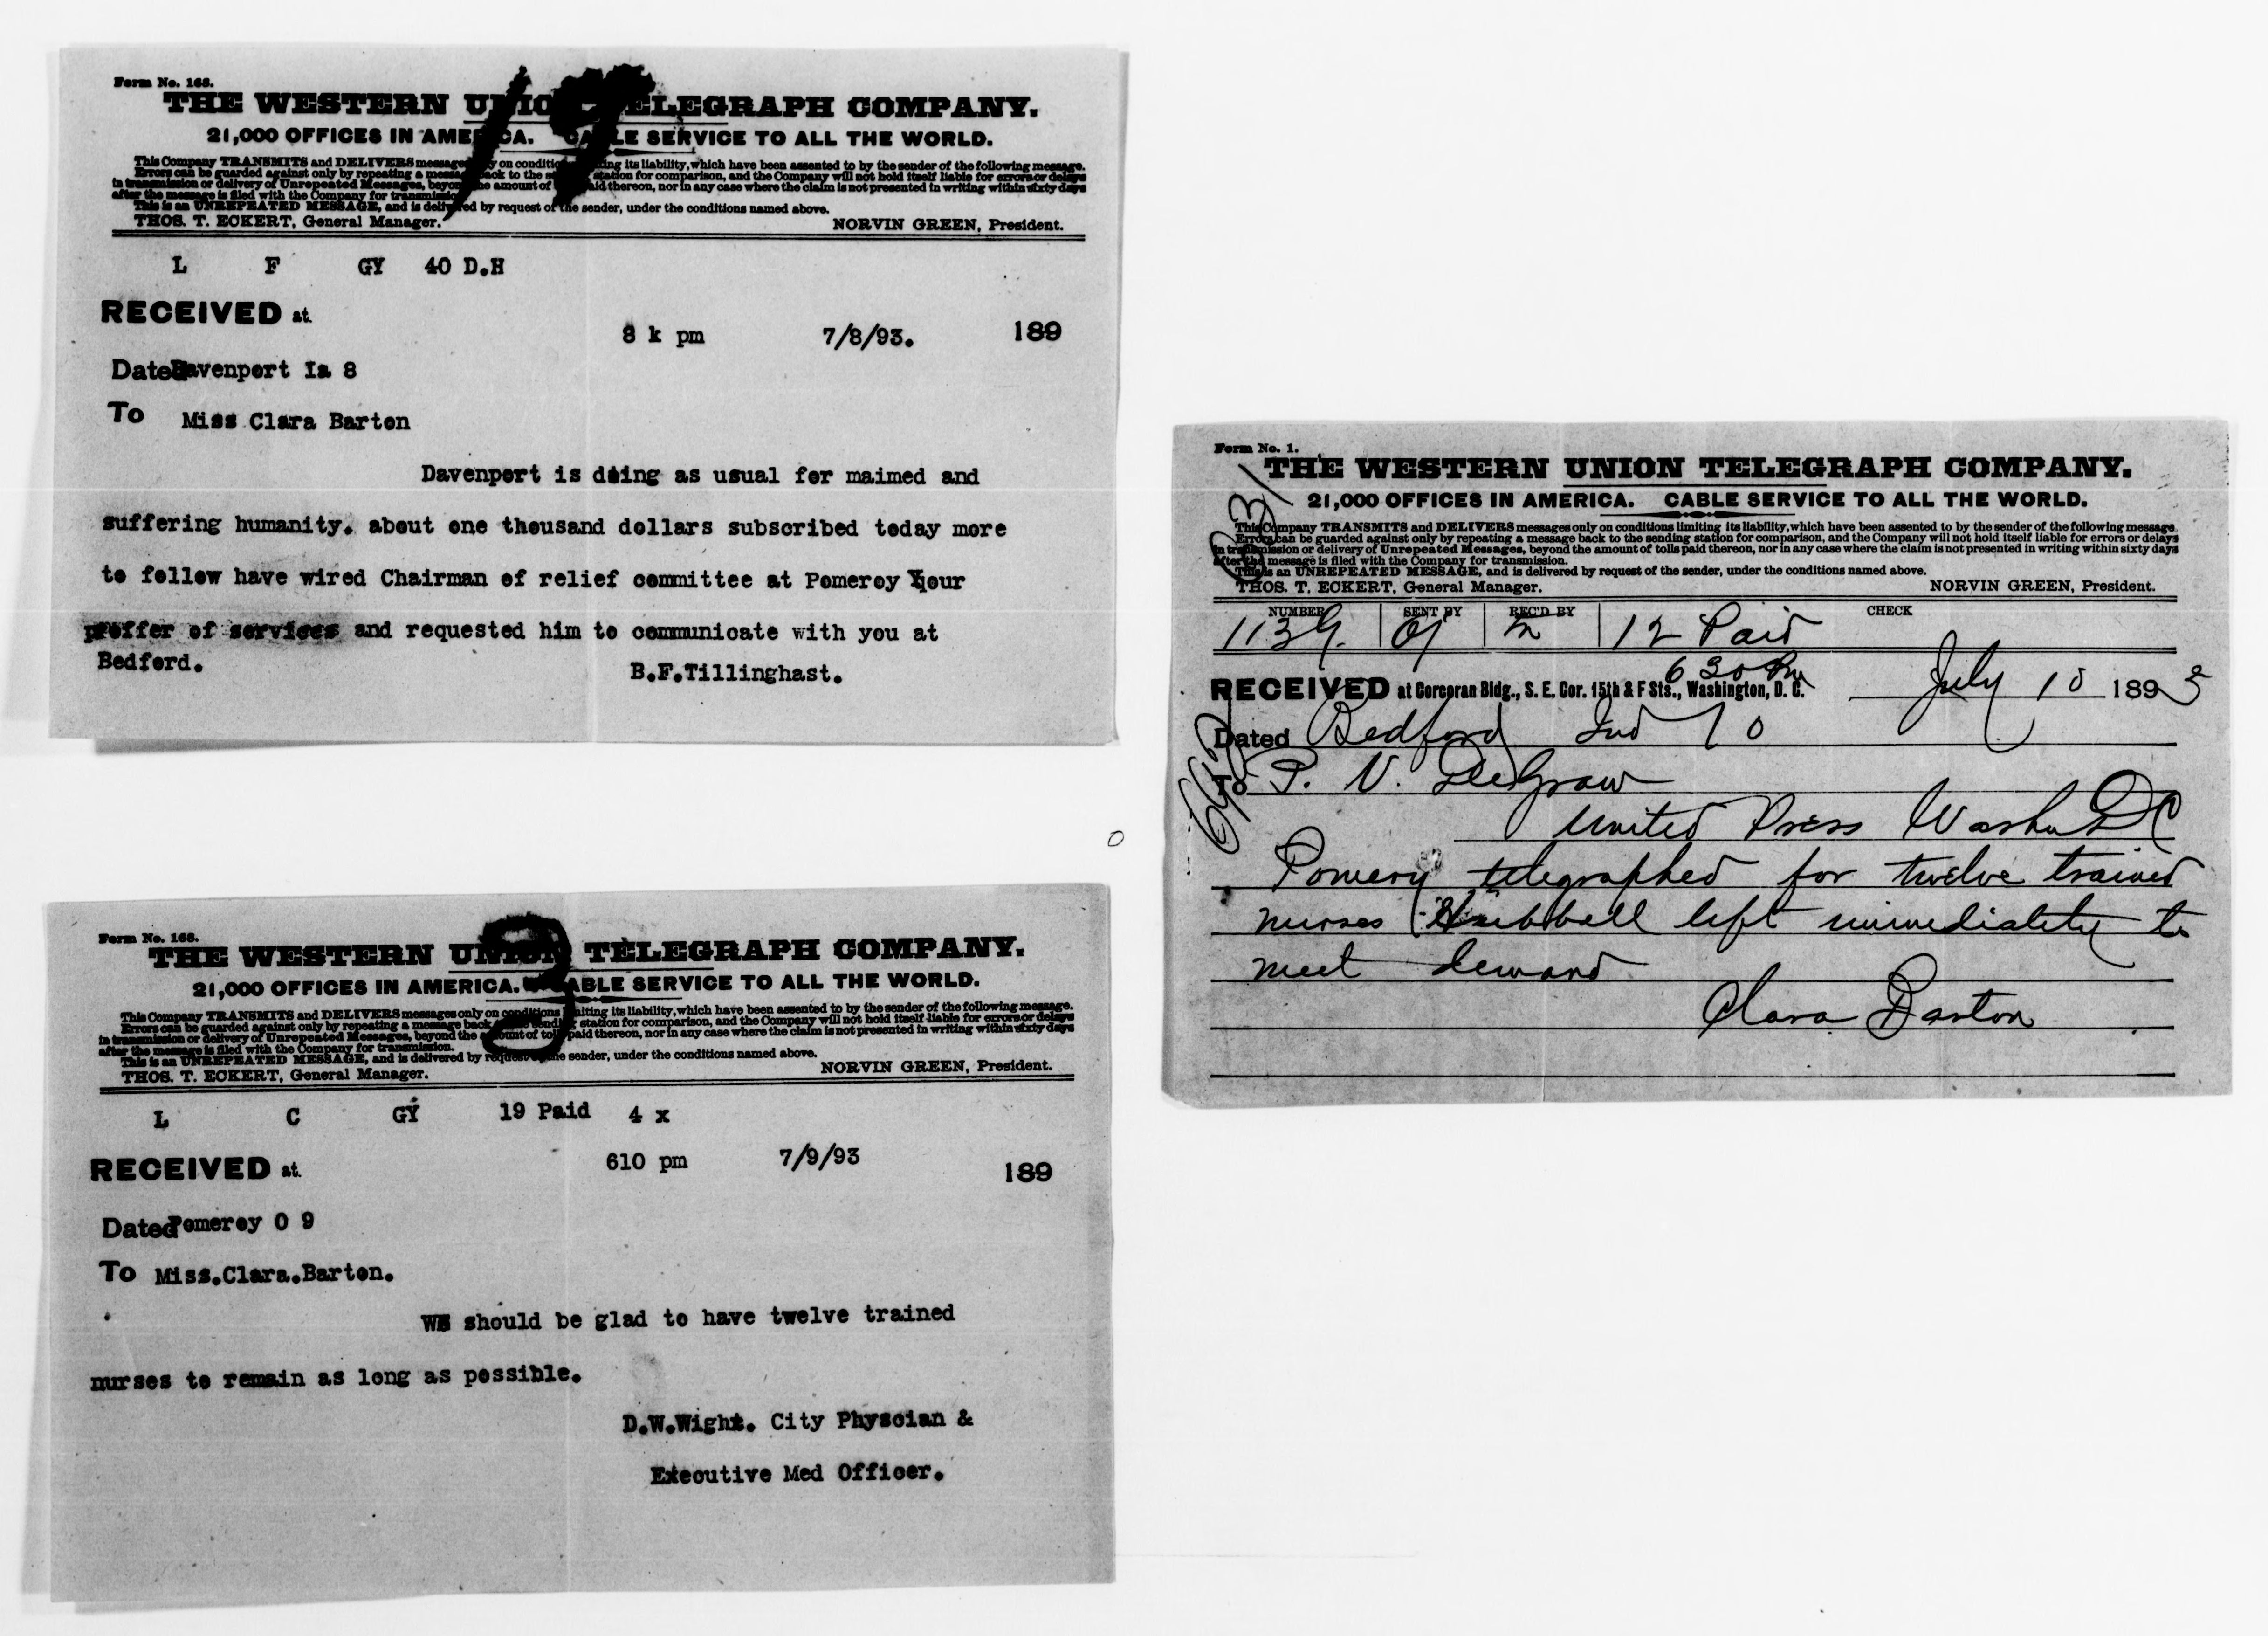 19
Form No. 168.
THE WESTERN UNION TELEGRAPH COMPANY.
21,000 OFFICES IN AMERICA. CABLE SERVICE TO ALL THE WORLD.
This Company TRANSMITS and DELIVERS messages only on conditions limiting its liability, which have been assented to by the sender of the following message.
Errors can be guarded against only by repeating a message back to the sending station for comparison, and the Company will not hold itself liable for errors or delays
in transmission or delivery of Unrepeated Messages, beyond the amount of tolls paid thereon, nor in any case where the claim is not presented in writing within sixty days
after the message is filed with the Company for transmission.
This is an UNREPEATED MESSAGE, and is delivered by request of the sender, under the conditions named above.
THOS. T. ECKERT, General Manager. NORVIN GREEN, President.
L F GY 40 D.H
RECEIVED at.
8 k pm 7/8/93. 189
Dated Davenport Ia 8
To Miss Clara Barton
Davenport is doing as usual for maimed and
suffering humanity. about one thousand dollars subscribed today more
to follow have wired Chairman of relief committee at Pomeroy Your
proffer of services and requested him to communicate with you at
Bedford. B.F.Tillinghast.
9
Form No. 168.
THE WESTERN UNION TELEGRAPH COMPANY.
21,000 OFFICES IN AMERICA. CABLE SERVICE TO ALL THE WORLD.
This Company TRANSMITS and DELIVERS messages only on conditions limiting its liability, which have been assented to by the sender of the following message.
Errors can be guarded against only by repeating a message back to the sending station for comparison, and the Company will not hold itself liable for errors or delays
in transmission or delivery of Unrepeated Messages, beyond the amount of tolls paid thereon, nor in any case where the claim is not presented in writing within sixty days
after the message is filed with the Company for transmission.
This is an UNREPEATED MESSAGE, and is delivered by request of the sender, under the conditions named above.
THOS. T. ECKERT, General Manager. NORVIN GREEN, President.
L C GY 19 Paid 4 x
610 pm 7/9/93
RECEIVED at. 189
Dated Pomeroy O 9
To Miss.Clara.Barton.
WE should be glad to have twelve trained
nurses to remain as long as possible.
D.W.Wight. City Physcian &
Executive Med Officer.
Form No. 1.
THE WESTERN UNION TELEGRAPH COMPANY.
21,000 OFFICES IN AMERICA. CABLE SERVICE TO ALL THE WORLD.
This Company TRANSMITS and DELIVERS messages only on conditions limiting its liability, which have been assented to by the sender of the following message.
Errors can be guarded against only by repeating a message back to the sending station for comparison, and the Company will not hold itself liable for errors or delays
in transmission or delivery of Unrepeated Messages, beyond the amount of tolls paid thereon, nor in any case where the claim is not presented in writing within sixty days
after the message is filed with the Company for transmission.
This is an UNREPEATED MESSAGE, and is delivered by request of the sender, under the conditions named above.
THOS. T. ECKERT, General Manager. NORVIN GREEN, President.
NUMBER SENT BY REC'D BY CHECK
1139 12 Paid
630 Pm
RECEIVED at Corcoran Bldg., S. E. Cor. 15th & F Sts., Washington, D. C. July 10 1893
Dated Bedford Ind 10
To P. V. DeGraw
United Press Washn DC
Pomeroy telegraphed for twelve trained
nurses Hubbell left immediately to
meet demand
Clara Barton